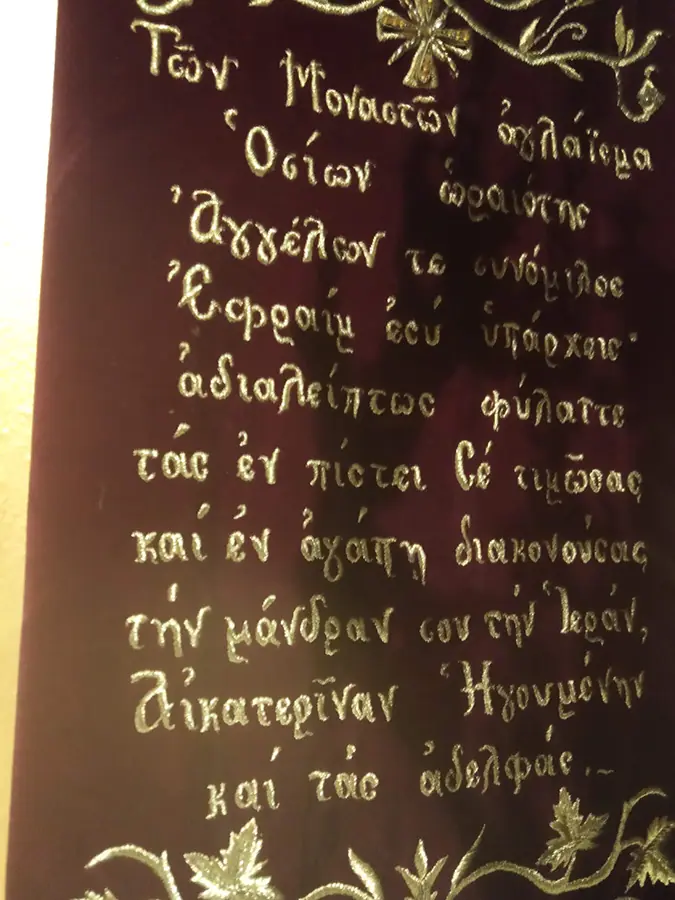 Τῶν Μοναστῶν ἀγλάϊσμα
Ὁσίων ὡραιότης
Ἀγγέλων τε συνόμιλος
Ἐφραίμ ἐσύ ὑπάρχεις·
ἀδιαλείπτως φύλαττε
τάς ἐν πίστει Σέ τιμῶσας
καί ἐν ἀγάπῃ διακονούσας
τήν μάνδραν σου τήν Ἱεράν,
Αἰκατερῖναν Ἡγουμένην
καί τάς ἀδελφάς.~